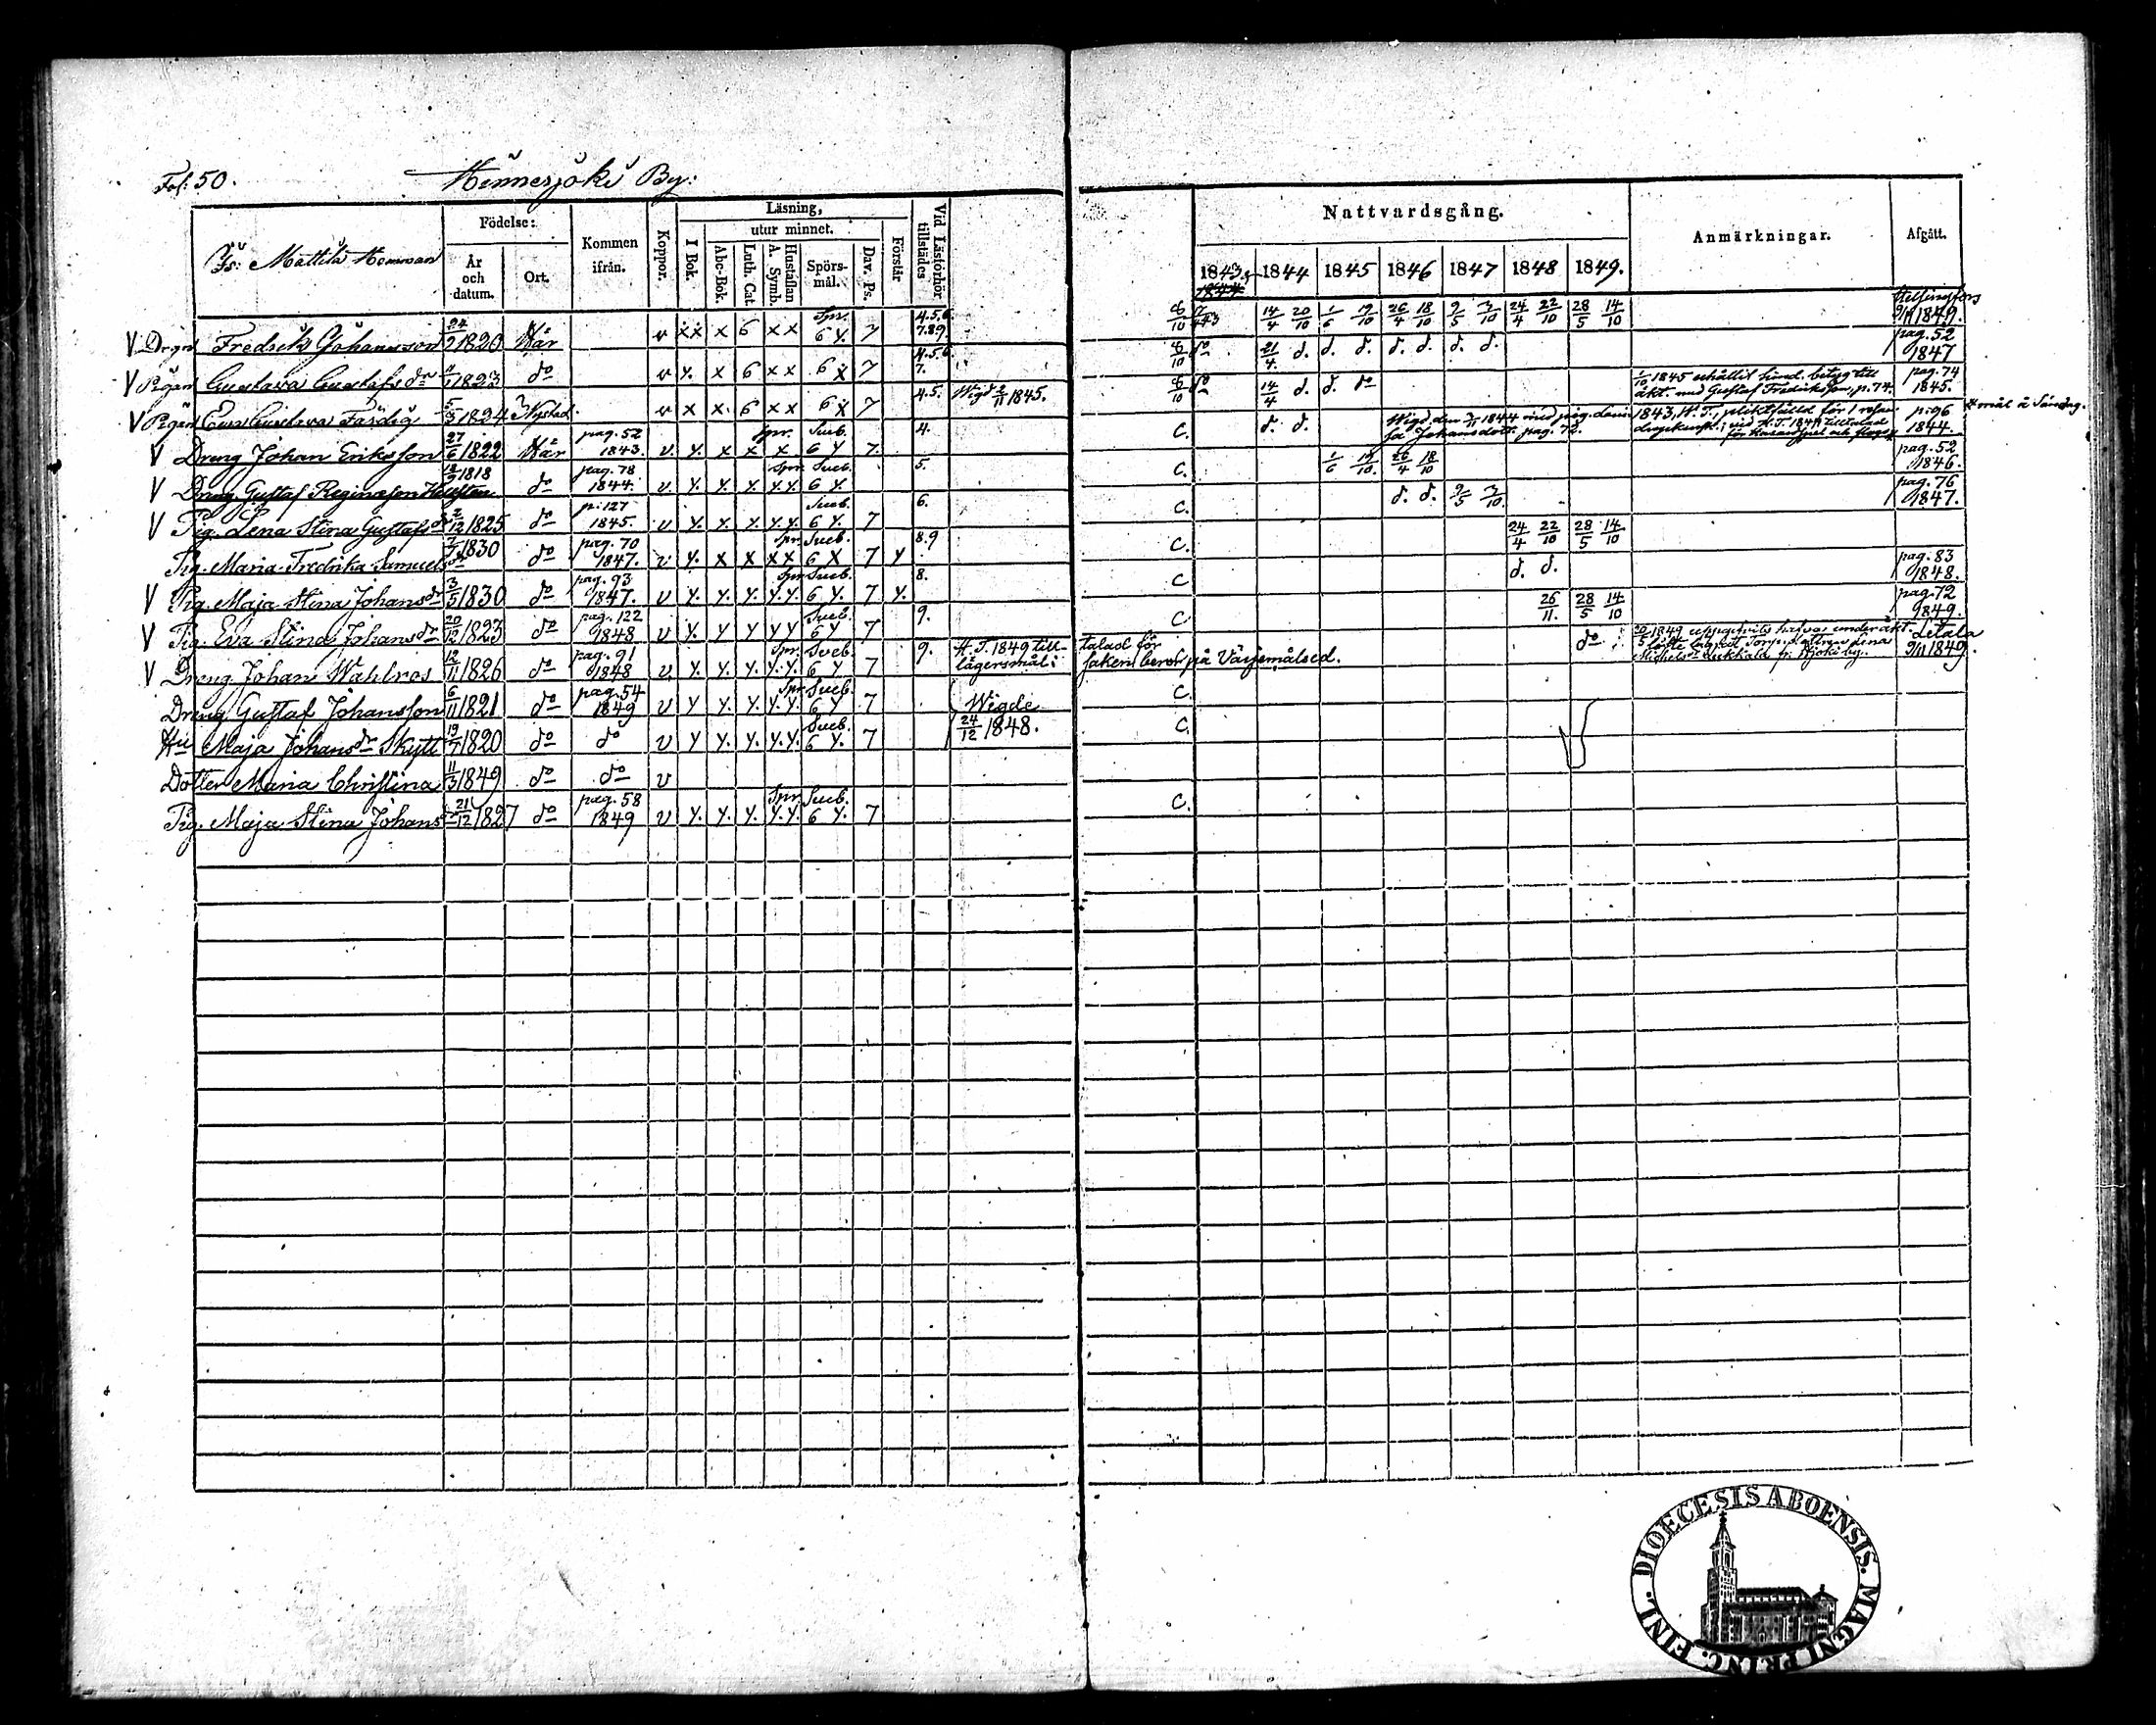 Fol: 50. Hinnerjoki By:
Is: Mattila Hemman
Födelse:
År och datum.
Ort.
Kommen ifrån.
Koppor.
Läsning,
I Bok.
utur minnet.
Abc-Bok.
Luth. Cat.
Hustaflan A. Symb.
Spörsmål.
Dav. Ps.
Förstår
Vid Läsförhör tillstädes
Nattvardsgång.
1843 & 1844 1844 1845 1846 1847 1848 1849.
Anmärkningar.
Afgått.
V Drgn Fredrik Johansson 24/2 1820 Här v xx x 6 xx Spr. 6 y. 7 4.5.6. 7.89. 6/10 14/4 20/10 1/6 19/10 26/4 18/10 9/5 3/10 24/4 22/10 28/5 14/10 Helsingfors 9/11 1849.
V Pigan Gustava Gustafs dr 1823 do v y. x 6 xx 6 x 7 4.5.6. 7. 6/10 do 21/4 d. d. d. d. d. d. d. pag. 52 1847
V Pigan Eva Gustava Färdig 5/3 1824 Nystad. v x x. 6 xx 6 x 7 4.5. Wigd 2/11 1845. 6/10 do 14/4 d. d. do 1/10 1845 erhållit hind. betyg till äkt. med Gustaf Fredriksson, p. 74. pag. 74 1845.
V Dreng Johan Eriksson 27/6 1822 Här pag. 52 1843. v. y. x x x Spr. Sueb. 6 y 7. 4. C. d. d. Wigd den 3/11 1844 med pig. Lovisa Johansdott. pag. 72. 1843, H. T., pliktfälld för 1 resan p: 96 1844.
V Dreng Gustaf Reginæson Hellsten 18/3 1818 do pag. 78 1844. v. y. y. y. y.y. Spr. Sueb. 6 y. 5. C. 1/6 19/10. 26/4 18/10 pag. 52 1846.
V Pig. Lena Stina Gustafs dr 2/12 1825 do p: 127 1845. v y. y. y. y.y. Sueb. 6 y. 7 6. C. d. d. 9/5 3/10. pag. 76 1847.
Pig. Maria Fredrika Samuels dr 7/7 1830 do pag. 70 1847. v y. x x xx Spr. Sueb. 6 x 7 y 8.9 C. 24/4 22/10 28/5 14/10
V Pig. Maja Stina Johans dr 3/5 1830 do pag. 93 1847. v y. y. y. y.y. Spr. Sueb. 6 y. 7 y. 8. C d. d. pag. 83 1848.
V Pig. Eva Stina Johans dr 20/12 1823 do pag. 122 1848 v y. y y y y Sueb. 6 y 7 9. C. 26/11. 28/5 14/10 pag. 72 1849.
V Dreng Johan Wahlros 12/11 1826 do pag. 91 1848 v y. y. y. y.y. Spr. Sueb. 6 y. 7 9. H. T. 1849 till- talad för
lägersmål; saken beror på Värjemålsed. do Letala 9/11 1849.
Dreng Gustaf Johansson 6/11 1821 do pag. 54 1849 v y y. y. y.y. Spr. Sueb. 6 y 7 Wigde C.
Hu Maja Johans dr Skytt 19/7 1820 do do v y y. y. y.y. Sueb. 6 y. 7 24/12 1848. C.
Dotter Maria Christina 11/3 1849 do do v
Pig. Maja Stina Johans 21/12 1827 do pag. 58 1849 v y. y. y. y.y. Spr. Sueb. 6 y. 7 C.
DIOECESIS ABOENSIS. MAGNI PRINC. FINL.